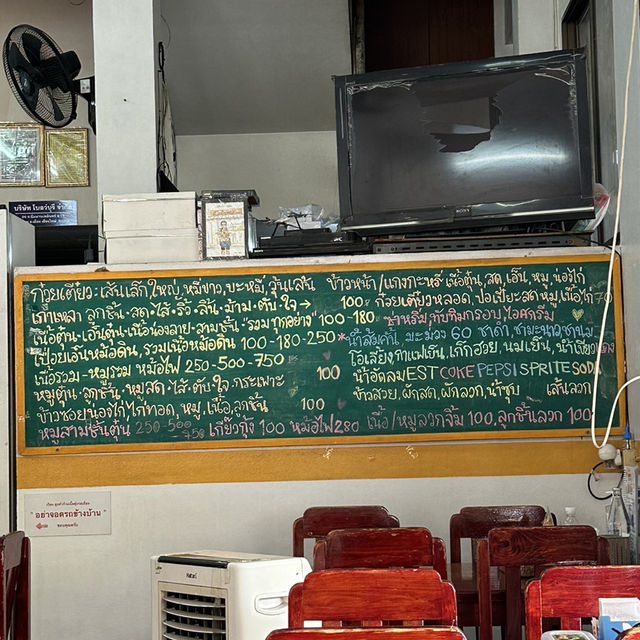 ก๋วยเตี๋ยว: เส้นเล็ก ใหญ่, หมี่ขาว, บะหมี่, วุ้นเส้น
เกาเหลา ลูกชิ้น สด ไส้ ตับ ใจ → 100
เนื้อตุ๋น เอ็นตุ๋น เนื้อน่องลาย สามชั้น "รวมทุกอย่าง" 100-180
เปื่อยเอ็นหม้อดิน, รวมเนื้อหม้อดิน 100-180-250
เนื้อรวม-หมูรวม หม้อไฟ 250-500-750
หมูตุ๋น ลูกชิ้น, หมูสด ไส้ ตับ ใจ กระเพาะ 100
ข้าวซอยน่องไก่ ไก่ทอด, หมู, เนื้อ, ลูกชิ้น 100
หมูสามชั้นตุ๋น 250-500 750 เกี๊ยวกุ้ง 100 หม้อไฟ 280 เนื้อ/หมูลวกจิ้ม 100, ลูกชิ้นลวก 100
ข้าวหน้า/แกงกะหรี่ เนื้อตุ๋น, สด, เอ็น, หมู, น่องไก่
ก๋วยเตี๋ยวหลอด, ปอเปี๊ยะสด หมู, เนื้อ, ไก่ 70
ซ่าหริ่ม, ทับทิมกรอบ, ไอศกรีม
*น้ำส้มคั้น, มะม่วง 60 ชาดำ, ชามะนาว, ชานม
โอเลี้ยง, กาแฟเย็น, เก๊กฮวย, นมเย็น, น้ำเขียว แดง
น้ำอัดลม EST COKE PEPSI SPRITE SODA
ข้าวสวย, ผักสด, ผักลวก, น้ำซุป เส้นลวก
SONY
"อย่าจอดรถข้างบ้าน"
ขอบคุณครับ
Hatari